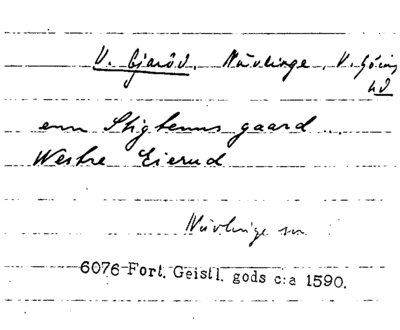 V. Gjaröd, Nävlinge, V. Göing
hd
enn Stigtenns gaard ...
Westre Eierud
Nävlinge sn
6076 Fort. Geistl. gods c:a 1590.